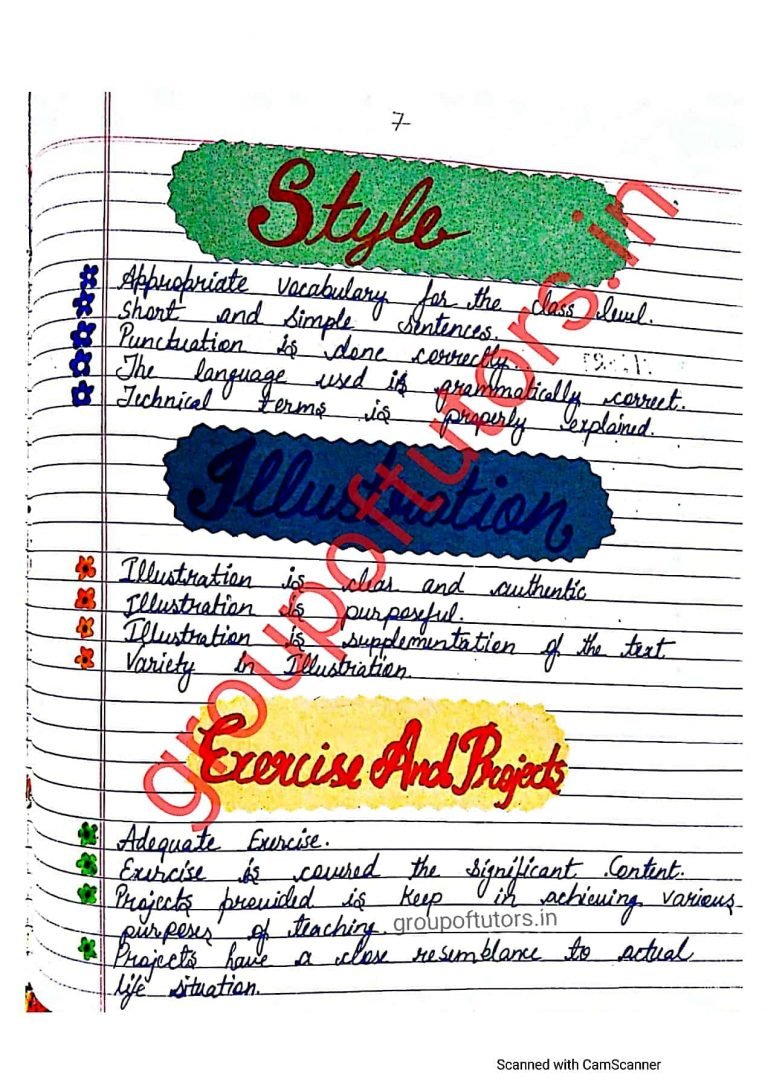 7
Style
Appropriate vocabulary for the class level.
Short and simple sentences.
Punctuation is done correctly.
The language used is grammatically correct.
Technical terms is properly explained.
Illustration
Illustration is clear and authentic
Illustration is purposeful.
Illustration is supplementation of the text
Variety in Illustration.
Exercise And Projects
Adequate Exercise.
Exercise is covered the significant Content.
Projects provided is Keep in achieving various
purposes of teaching.
groupoftutors.in
Projects have a close resemblance to actual
life situation.
groupoftutors.in
Scanned with CamScanner